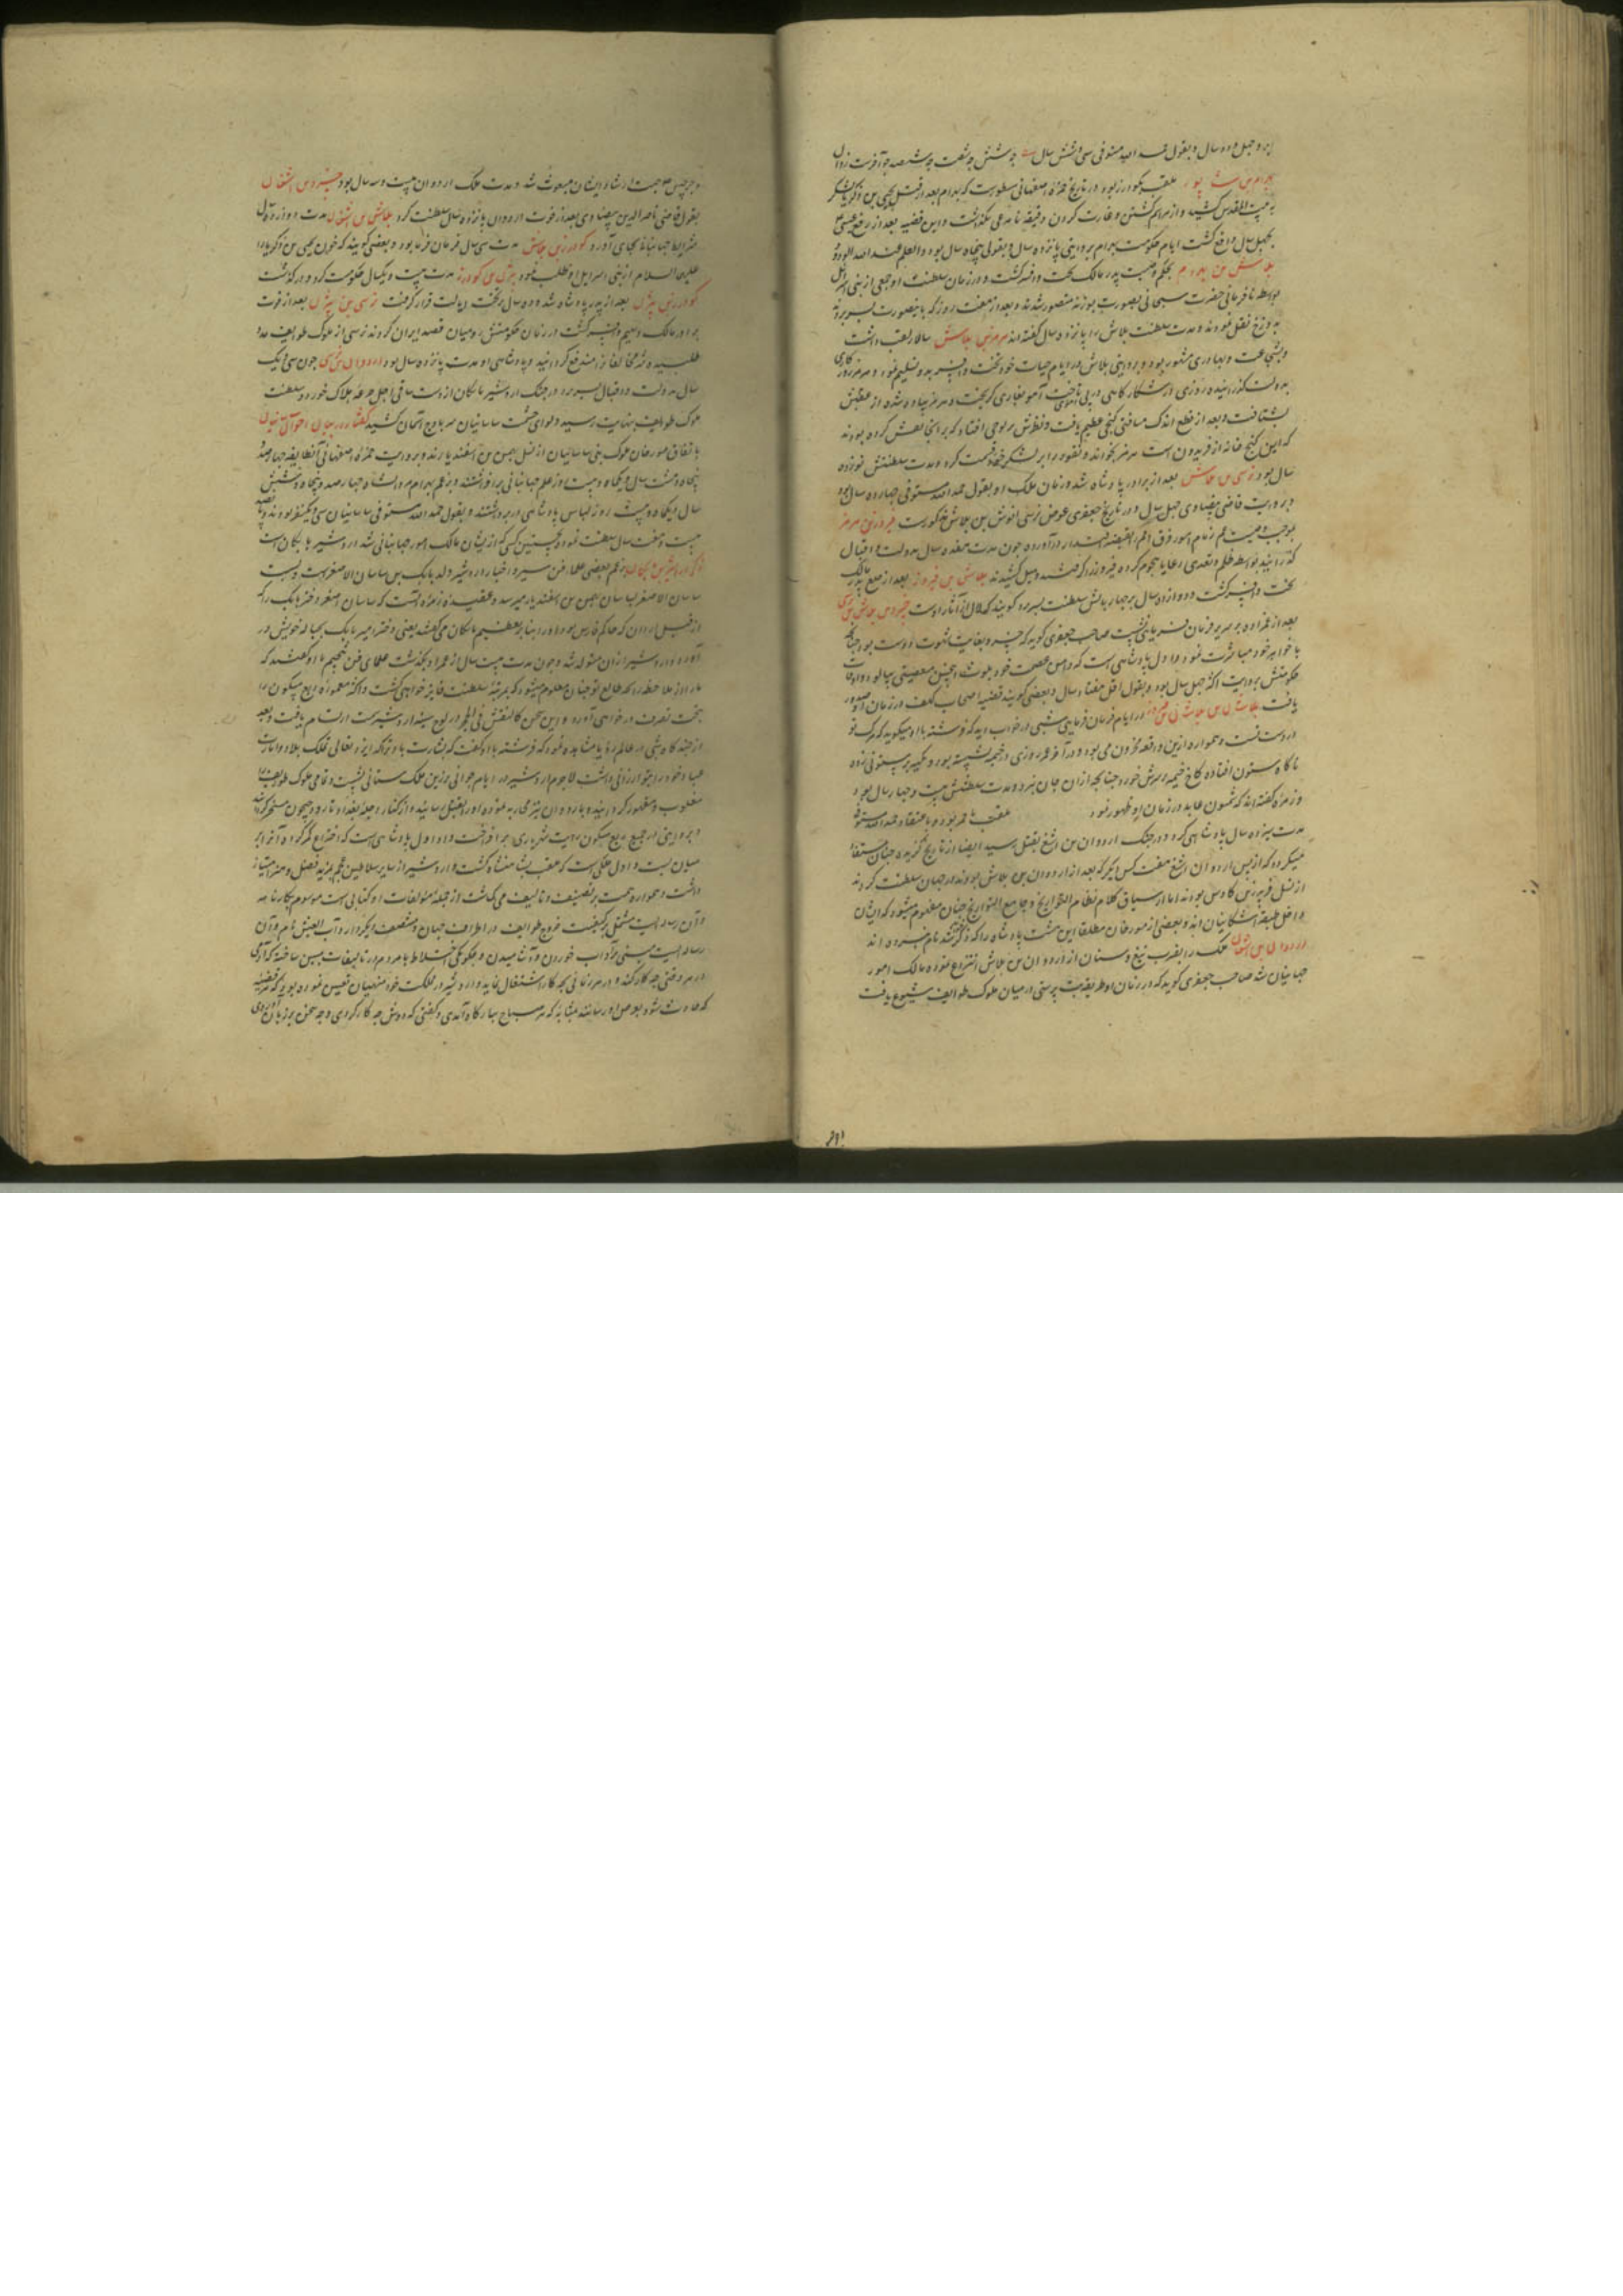 بهرام بن شاپور ملقب بگودرز بود و در تاریخ حمزه اصفهانی مسطورست که بهرام بعد از قتل یحیی بن زکریا لشکر
به بیت المقدس کشید و از مراسم کشتن و غارت کردن دقیقه نامرعی نگذاشت و این قضیه بعد از رفع عیسی
بچهل سال واقع گشت ایام حکومت بهرام بروایتی پانزده سال و بقولی پنجاه سال بود و العلم عند الله الودود
بلاش بن بهرام بحکم وصیت پدر مالک تخت و افسر گشت و در زمان سلطنت او جمعی از بنی اسرائیل
بواسطه نافرمانی حضرت سبحانی بصورت بوزنه متصور شدند و بعد از هفت روز که باینصورت بسر بردند
بدوزخ نقل نمودند و مدت سلطنت بلاش را پانزده سال گفته اند هرمز بن بلاش سالار لقب داشت
و بشجاعت و بهادری مشهور بود و بروایتی بلاش در ایام حیات خود تخت و افسر بدو تسلیم نمود و هرمز روزگاری
بدولت گذرانیده روزی در شکارگاهی در پی آهو تاخت آهو بغاری گریخت و هرمز پیاده شده از عقبش
بشتافت و بعد از قطع اندک مسافتی گنجی عظیم یافت و نظرش بر لوحی افتاد که بر آنجا نقش کرده بودند
که این گنج خانه از فریدون است هرمز بخواند و نقود را بر لشکر خود قسمت کرد و مدت سلطنتش نوزده
سال بود نرسی بن بلاش بعد از برادر پادشاه شد و زمان ملک او بقول حمد الله مستوفی چهارده سال بود
و بروایت قاضی بیضاوی چهل سال و در تاریخ جعفری عوض نرسی انوش بن بلاش مذکورست فیروز بن هرمز
بموجب وصیت عم زمام امور فرق امم بقبضه اقتدار درآورد چون مدت هفده سال بدولت و اقبال
گذرانید بواسطه ظلم و تعدی رعایا هجوم کرده فیروز را گرفتند و میل کشیدند بلاش بن فیروز بعد از خلع پدر مالک
تخت و افسر گشت و دوازده سال بر چهار بالش سلطنت بسر برد گویند که لار از آثار اوست خسرو بن بلاش بن نرسی
بعد از عمزاده بر سریر فرمان فرمایی نشست صاحب جعفری گوید که خسرو بغایت شهوت دوست بود چنانچه
با خواهر خود مباشرت نمود و اول پادشاهی است که دامن عصمت خود بلوث اینچنین معصیتی بیالود و اوقات
حکومتش بروایت اکثر چهل سال بود و بقول اقل هفتاد سال و بعضی گویند قضیه اصحاب کهف در زمان او صدور
یافت بلاشان بن بلاش بن فیروز در ایام فرمان فرمایی شبی در خواب دید که فرشته با او میگوید که مرگ تو
در دست تست و همواره ازین واقعه محزون می بود و در آخر عمر روزی در خیمه نشسته بود و تکیه بر ستونی زده
ناگاه ستون افتاده کاخ خیمه بر سرش خورد چنانچه از آن جان نبرد و مدت سلطنتش بیست و چهار سال بود
و زمره گفته اند که شمسون عابد در زمان او ظهور نمود
مدت سیزده سال پادشاهی کرد و در جنگ اردوان بن اشغ بقتل رسید ایضا از تاریخ گزیده چنان مستفاد
میگردد که از پس اردوان اشغ هفت کس دیگر که بعد از اردوان بن بلاش بودند در جهان سلطنت کردند
از نسل فریبرز بن کاوس بودند اما از سیاق کلام نظام التواریخ و جامع التواریخ چنان معلوم میشود که ایشان
داخل طبقه اشکانیان اند و بعضی از مورخان مطلقا این هشت پادشاه را که ذکر گشتند نام نبرده اند
اردوان بن اشغان ملک را بضرب تیغ و سنان از اردوان بن بلاش انتزاع نموده مالک امور
جهانیان شد صاحب جعفری گوید که در زمان او طریقه بت پرستی در میان ملوک طوایف شیوع یافت
و جرجیس جهت ارشاد ایشان مبعوث شد و مدت ملک اردوان بیست و سه سال بود خسرو بن اشغان
بقول قاضی ناصر الدین بیضاوی بعد از فوت اردوان پانزده سال سلطنت کرد بلاش بن اشغان مدت دوازده سال
شرایط جهانبانی بجای آورد گودرز بن بلاش مدت سی سال فرمان فرما بود و بعضی گویند که خون یحیی بن زکریا را
علیهما السلام از بنی اسرائیل او طلب نمود بیژن بن گودرز مدت بیست و یکسال حکومت کرد و درگذشت
گودرز بن بیژن بعد از پدر پادشاه شد و ده سال بر تخت ایالت قرار گرفت نرسی بن بیژن بعد از فوت
برادر مالک دیهیم و افسر گشت در زمان حکومتش رومیان قصد ایران کردند نرسی از ملوک طوایف مدد
طلبیده شر مخالفان را مندفع گردانید و پادشاهی او مدت پانزده سال بود اردوان بن نرسی چون سی و یک
سال بدولت و اقبال بسر برد در جنگ اردشیر بابکان از دست ساقی اجل جرعه هلاک خورد و سلطنت
ملوک طوایف بنهایت رسیده لوای حشمت ساسانیان سر باوج آسمان کشید گفتار در بیان احوال
باتفاق مورخان ملوک بنی ساسانیان از نسل بهمن بن اسفندیارند و بروایت حمزه اصفهانی آن طایفه چهارصد
پنجاه و هشت سال و یکماه و بیست روز علم جهانبانی برافراشتند و بزعم بهرام مردانشاه چهارصد و پنجاه و شش
سال و یکماه و بیست روز لباس پادشاهی در بر داشتند و بقول حمد الله مستوفی ساسانیان سی و یکنفر بودند و پانصد
بیست و هفت سال سلطنت نمود و نخستین کسی که از ایشان مالک امور جهانبانی شد اردشیر بابکان است
ذکر اردشیر بن بابکان بزعم بعضی علماء فن سیر و اخبار اردشیر ولد بابک بن ساسان الاصغرست و نسب
ساسان الاصغر بساسان بهمن بن اسفندیار میرسد و عقیده زمره آنست که ساسان اصغر دختر بابک را که
از قبل اردوان که حاکم فارس بود
آورد و اردشیر از آن متولد شد و چون مدت بیست سال از عمر او بگذشت علمای فن تنجیم با او گفتند که
ما را از ملاحظه زایچه طالع تو چنان معلوم میشود که بمرتبه سلطنت فایز خواهی گشت و اکثر معموره ربع مسکون را
بتحت تصرف در خواهی آورد و این سخن کالنقش فی الحجر در لوح سینه اردشیر سمت ارتسام یافت و بعد
از چندگاه شبی در عالم رؤیا مشاهده نمود که فرشته با او گفت که بشارت باد ترا که ایزد تعالی ملک بلاد و امارت
عباد خود را بتو ارزانی داشت لاجرم اردشیر در ایام جوانی بر زین ملک ستانی نشست و تمامی ملوک طوایف را
مغلوب و مقهور گردانید و با اردوان نیز محاربه نموده او را بقتل رسانید و از کنار دجله بغداد تا رود جیحون مسخر گردانید
و بروایتی در جمیع ربع مسکون رایت شهریاری برافراخت و او اول پادشاهی است که اختراع کمر کرد و آنرا بر
میان بست و اول ملکی است که بلقب شاهنشاه گشت و اردشیر از سایر سلاطین عجم بمزید فضل و هنر امتیاز
داشت و همواره همت بر تصنیف و تالیف می گماشت از جمله مؤلفات او کتابی است موسوم بکارنامه
و آن رساله ایست مشتمل بر کیفیت خروج طوایف در اطراف جهان و مصنف دیگر دارد آداب العیش نام و آن
رساله ایست مبنی بر آداب خوردن و آشامیدن و چگونگی اختلاط با مردم و در تالیفات مبین ساخته که آدمی
در هر وقتی چه کار کند و در هر زمانی بچه کار اشتغال نماید و اردشیر در مملکت خود منهیان تعیین نموده بود که هر قضیه
که حادث شود بعرض او رسانند بمثابه که هر صباح ببارگاه آمدی و گفتی که دوش چه کار کردی و چه سخن بر زبان آوردی